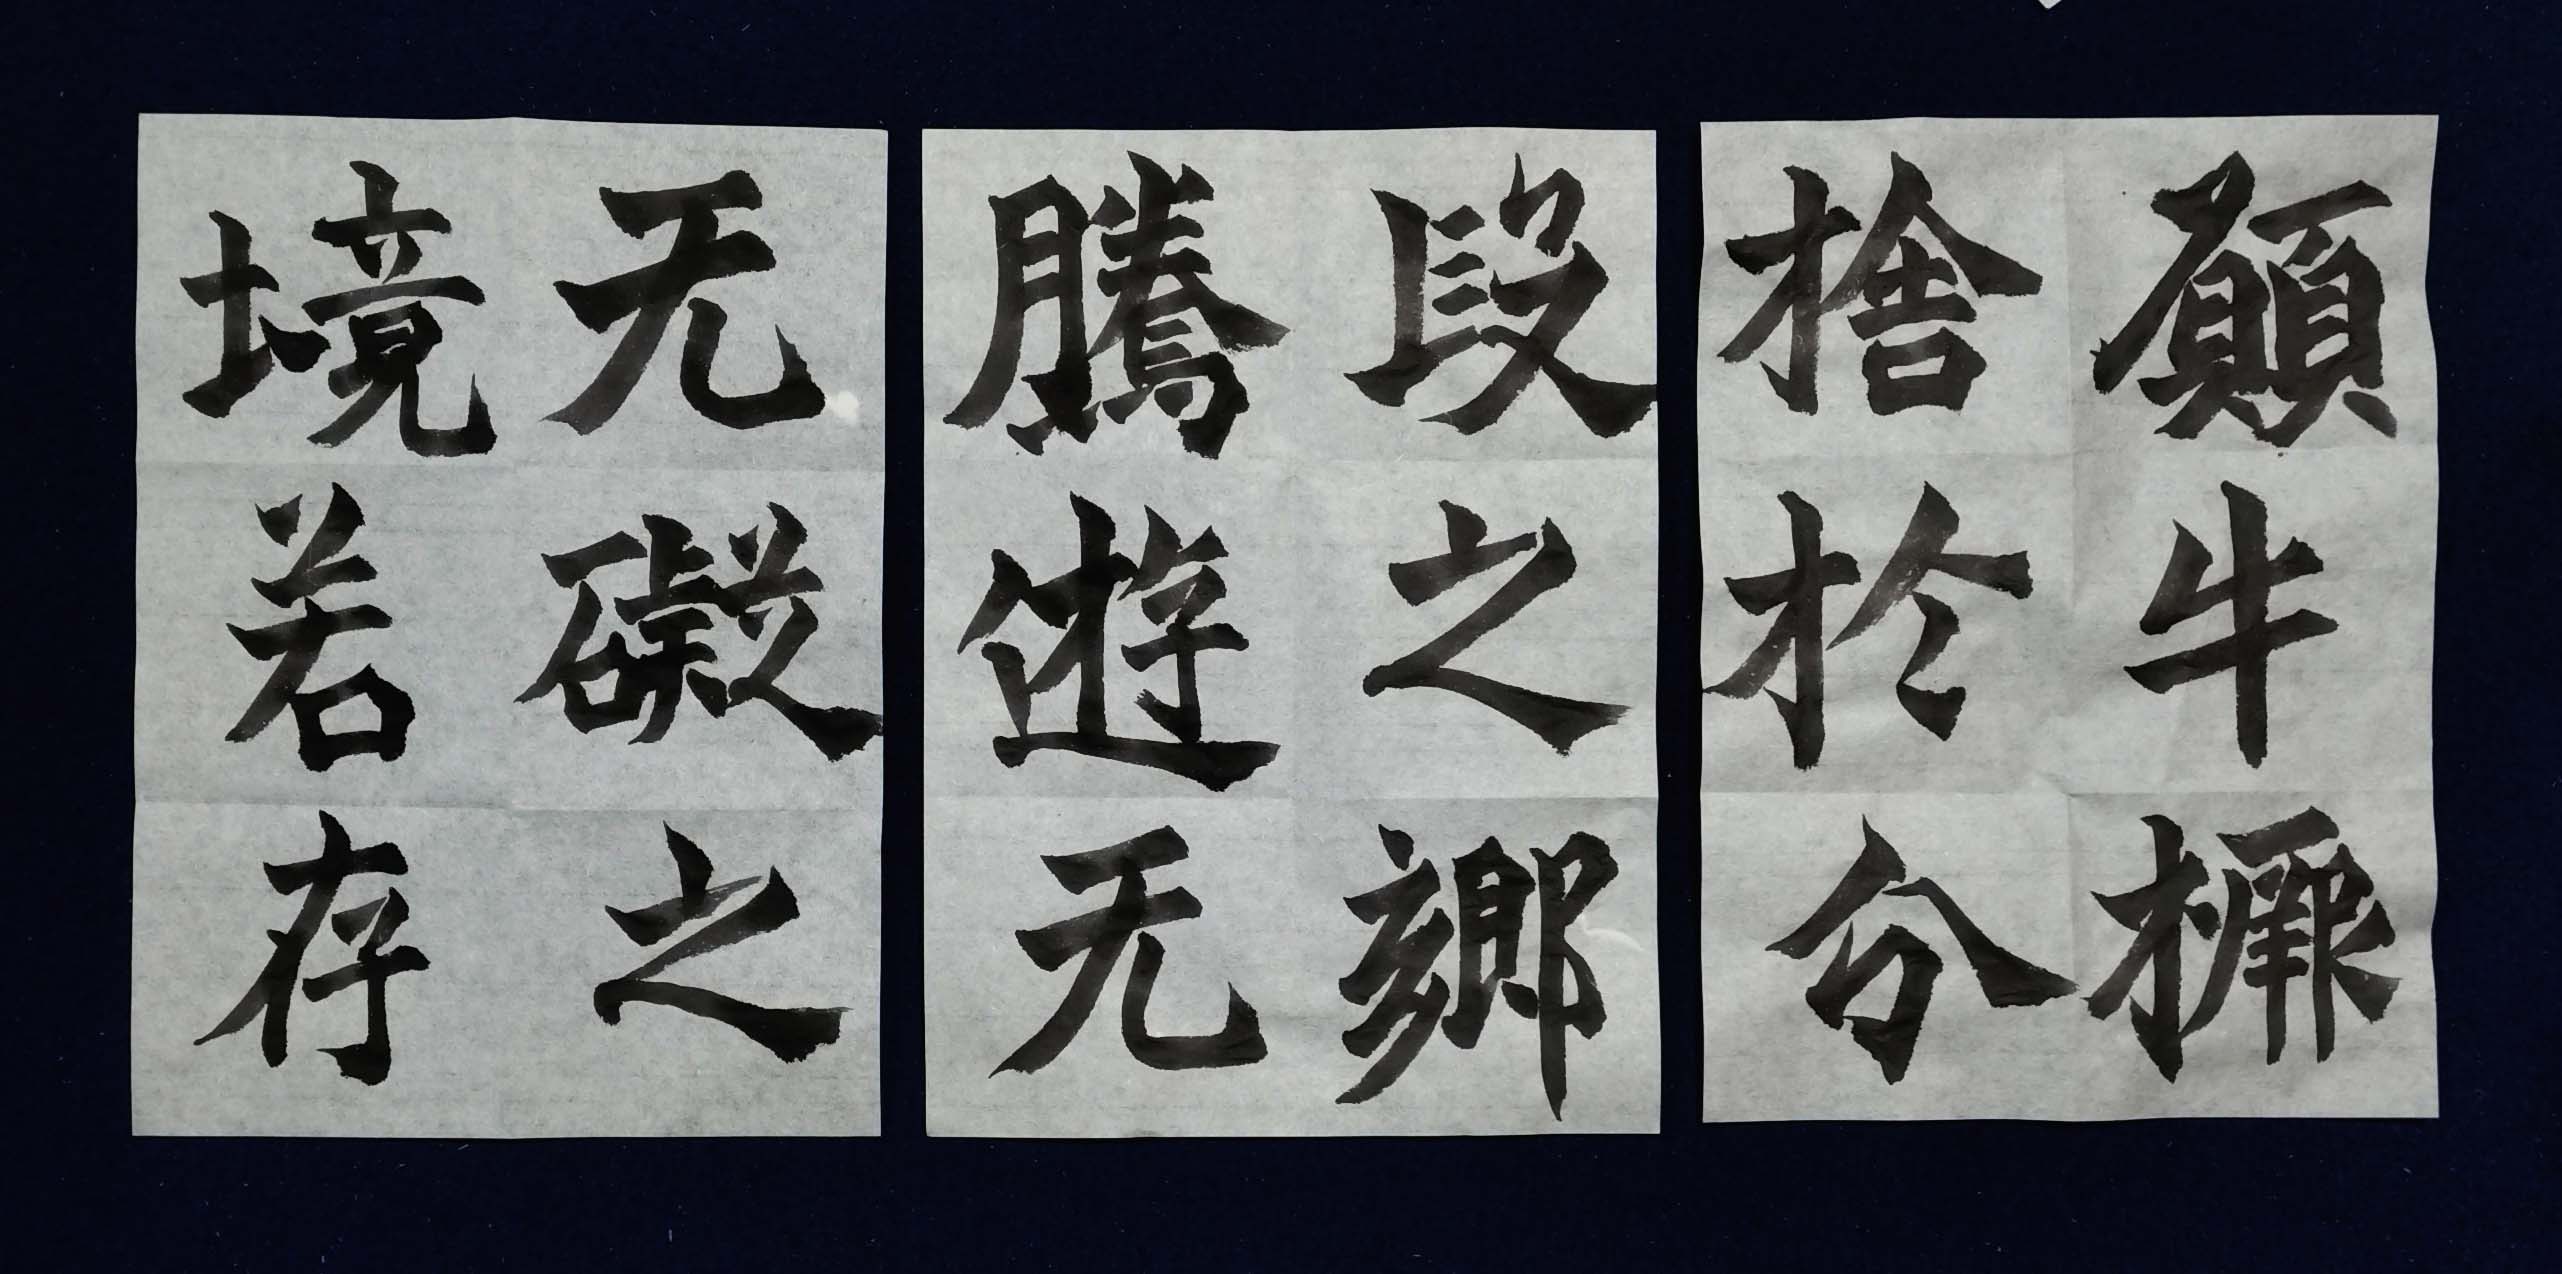 願牛橛
捨於分
段之鄉
騰遊无
无礙之
境若存